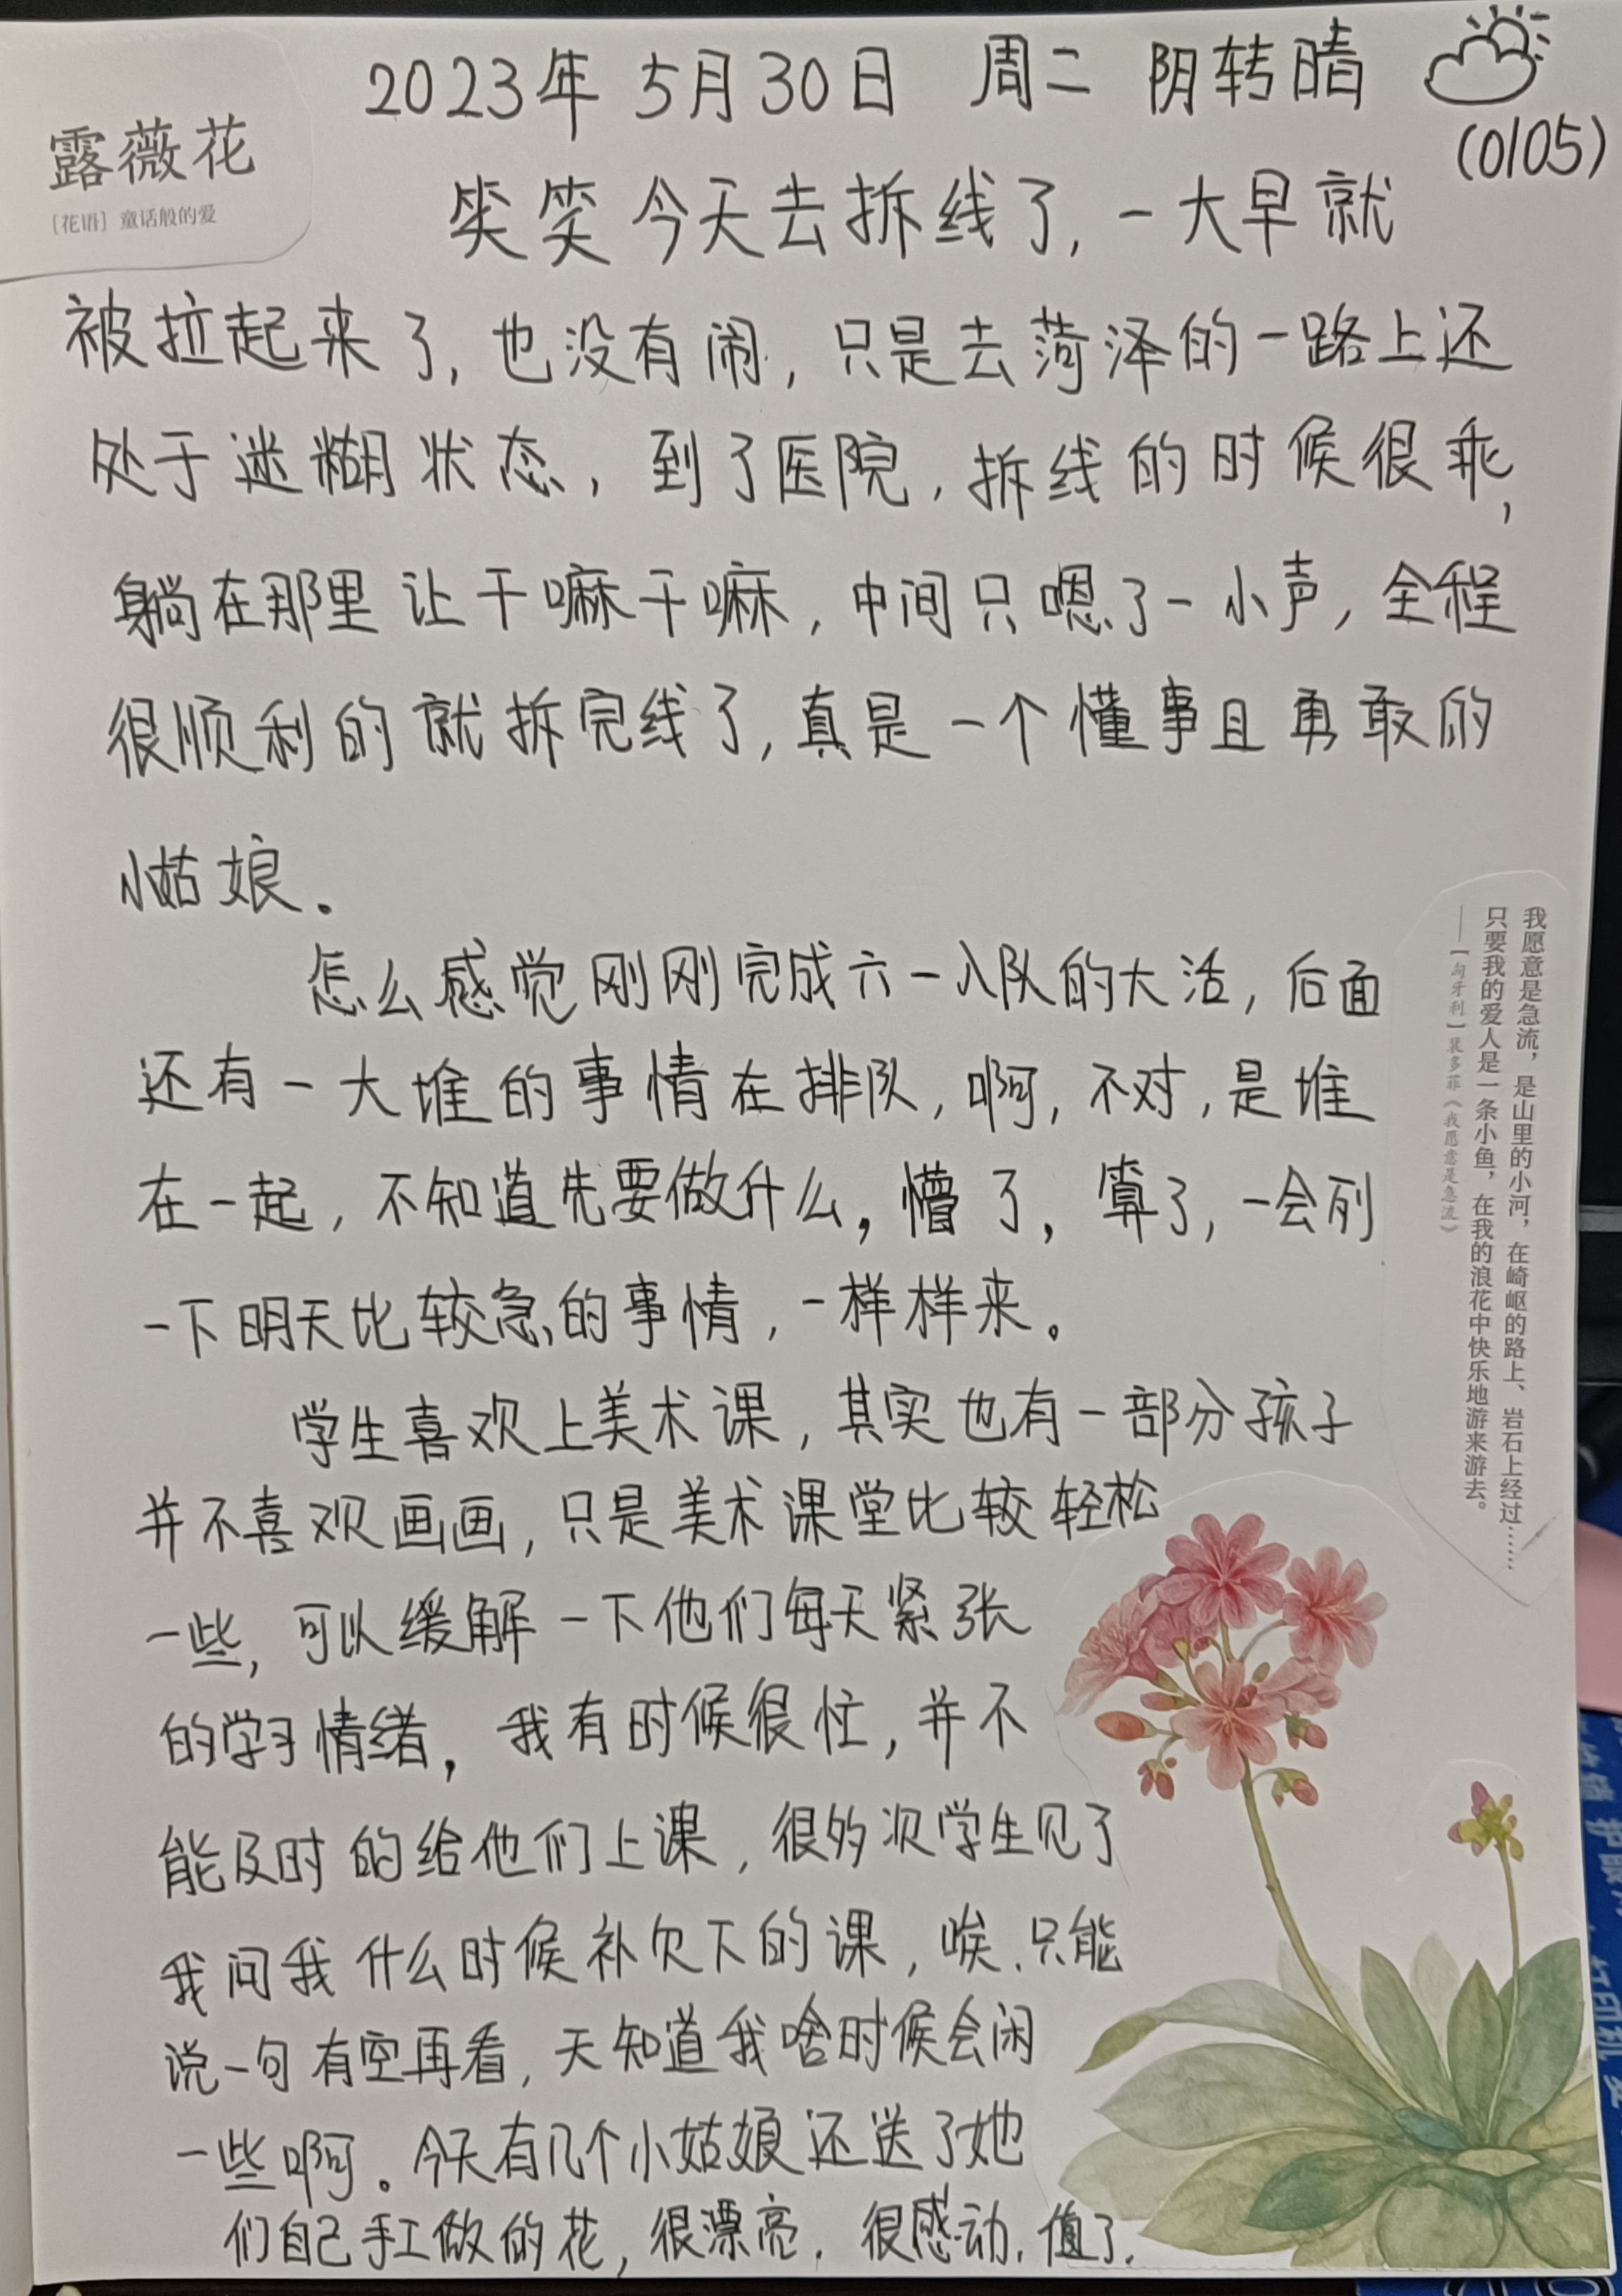 2023年 5月30日 周二 阴转晴
(0105)
露薇花
[花语] 童话般的爱
笑笑今天去拆线了,一大早就
被拉起来了,也没有闹,只是去菏泽的一路上还
处于迷糊状态,到了医院,拆线的时候很乖,
躺在那里让干嘛干嘛,中间只嗯了一小声,全程
很顺利的就拆完线了,真是一个懂事且勇敢的
小姑娘。
怎么感觉刚刚完成六一入队的大活,后面
还有一大堆的事情在排队,啊,不对,是堆
在一起,不知道先要做什么,懵了,算了,一会列
一下明天比较急的事情,一样样来。
学生喜欢上美术课,其实也有一部分孩子
并不喜欢画画,只是美术课堂比较轻松
一些,可以缓解一下他们每天紧张
的学习情绪,我有时候很忙,并不
能及时的给他们上课,很多次学生见了
我问我什么时候补欠下的课,唉,只能
说一句有空再看,天知道我啥时候会闲
一些啊。今天有几个小姑娘还送了她
们自己手工做的花,很漂亮,很感动,值了.
我愿意是急流,是山里的小河,在崎岖的路上、岩石上经过……
只要我的爱人是一条小鱼,在我的浪花中快乐地游来游去。
——[匈牙利] 裴多菲《我愿意是急流》